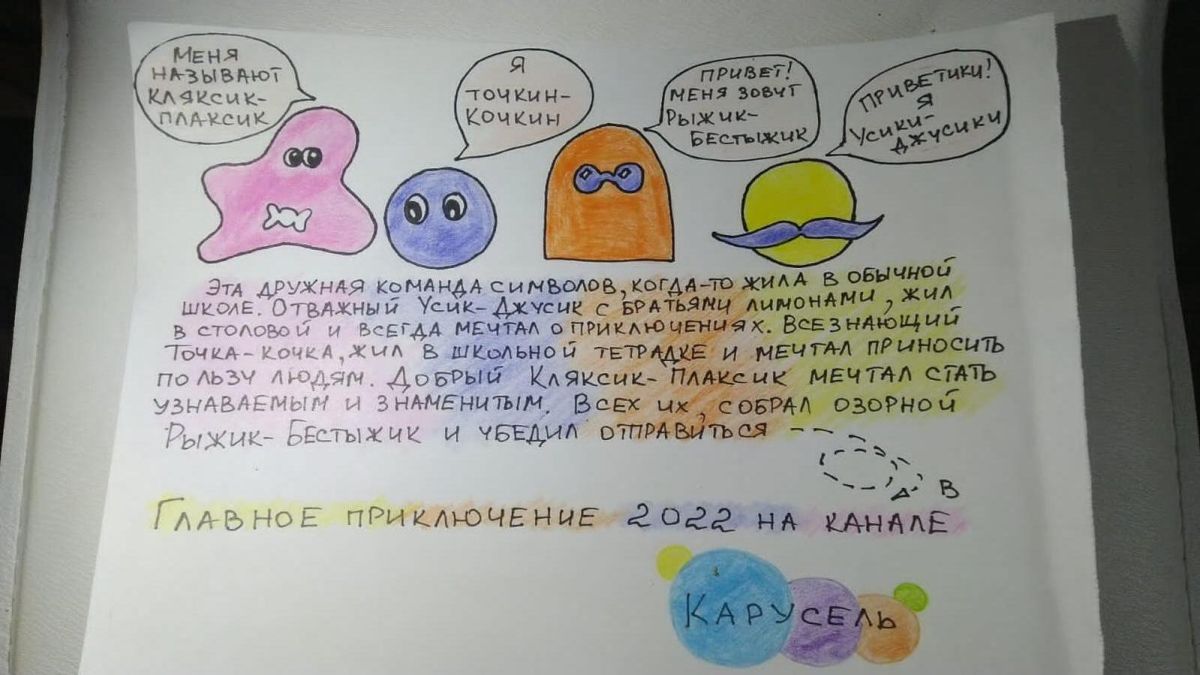 Меня
называют
Кляксик-
Плаксик
Я
Точкин-
Кочкин
Привет!
Меня зовут
Рыжик-
Бестыжик
Приветики!
Я
Усики-
Джусики
Эта дружная команда символов, когда-то жила в обычной
школе. Отважный Усик-Джусик с братьями лимонами, жил
в столовой и всегда мечтал о приключениях. Всезнающий
Точка-кочка, жил в школьной тетрадке и мечтал приносить
пользу людям. Добрый Кляксик-Плаксик мечтал стать
узнаваемым и знаменитым. Всех их, собрал озорной
Рыжик-Бестыжик и убедил отправиться
в
Главное приключение 2022 на канале
Карусель